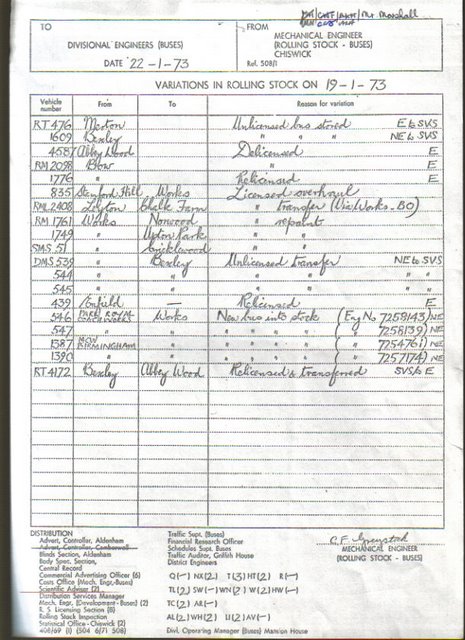 TO
FROM
Mr. Marshall
DIVISIONAL ENGINEERS (BUSES)
MECHANICAL ENGINEER
(ROLLING STOCK - BUSES)
CHISWICK
DATE 22-1-73
Ref. 508/1
VARIATIONS IN ROLLING STOCK ON 19-1-73
Vehicle number From To Reason for variation
RT 476 Merton Unlicensed bus stored E to SVS
1609 Bexley " " " NE to SVS
4587 Abbey Wood Delicensed E
RM 2098 Bow " E
1776 " Relicensed E
835 Stamford Hill Works Licensed overhaul
RML 2408 Leyton Chalk Farm " transfer (Via Works - BO)
RM 1761 Works Norwood " repaint
1749 " Upton Park " "
SMS 51 " Cricklewood " "
DMS 539 " Bexley Unlicensed transfer NE to SVS
544 " " " " " "
545 " " " " " "
439 Enfield — Relicensed E
546 PARK ROYAL COACHWORKS Works New bus into stock (Eng No 7259143) NE
547 " " " " " " 7258139) NE
1387 MCW BIRMINGHAM " " " " " 7254761) NE
1390 " " " " " " 7257174) NE
RT 4172 Bexley Abbey Wood Relicensed & transferred SVS to E
DISTRIBUTION
Advert. Controller, Aldenham
Advert. Controller, Camberwell
Blinds Section, Aldenham
Body Spec. Section,
Central Record
Commercial Advertising Officer (6)
Costs Office (Mech. Engr-Buses)
Scientific Adviser (2)
Distribution Services Manager
Mech. Engr. (Development - Buses) (2)
R. S. Licensing Section (8)
Rolling Stock Inspection
Statistical Office - Chiswick (2)
408/69 (1) (504 6/71 508)
Traffic Supt. (Buses)
Financial Research Officer
Schedules Supt. Buses
Traffic Auditor, Griffith House
District Engineers
Q(—) NX(2) T(3) HT(2) R(—)
TL(2) SW(—) WN(2) W(2) HW(—)
TC(2) AR(—)
AL(2) WH(2) U(2) AV(—)
Divl. Operating Manager (Buses) Mansion House
MECHANICAL ENGINEER
(ROLLING STOCK - BUSES)